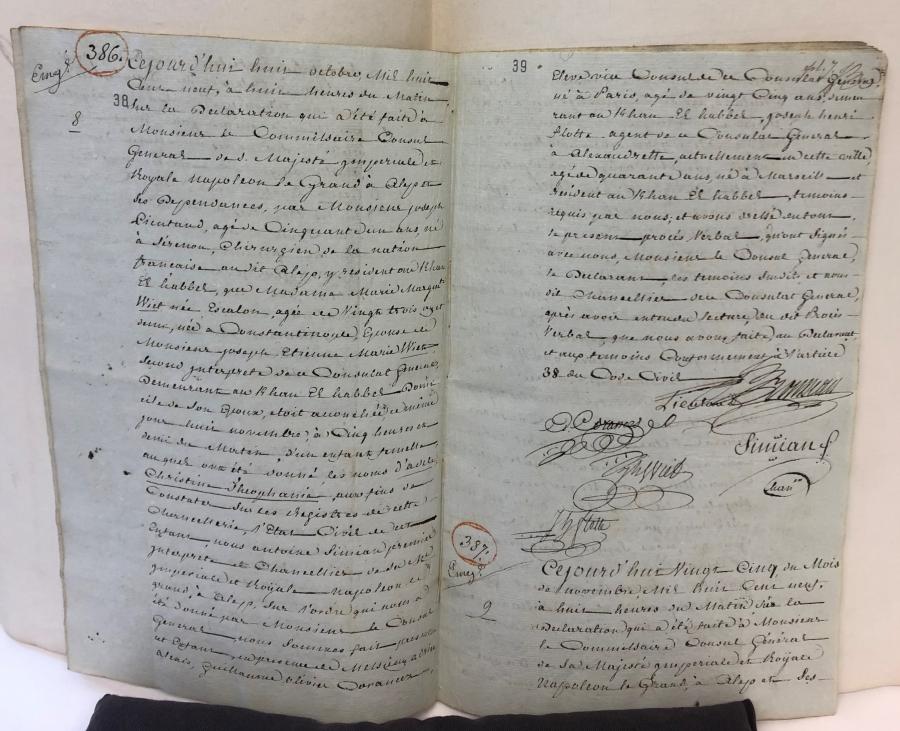 386.
Enreg.é
38
8
Cejourd'hui huit octobre, Mil huit
Cent neuf, à huit heures du Matin
sur la Declaration qui a été faite à
Monsieur le Commissaire Consul
General de S. Majesté Imperiale et
Royale Napoleon le Grand à Alep et
ses Dependances, par Monsieur Joseph
Lieutaud, agé de Cinquant'un ans, né
à Chirurgien de la nation
française au dit Alep, y resident au Khan
El habbel, que Madame Marie Marguite
Wiet née Escalon, agée de Vingt trois ans et
demi, née a Constantinople, Epouse de
Monsieur Joseph Etienne Marie Wiet
second interprete de ce Consulat General,
Demeurant au Khan El habbel Domi-
cile de son Epoux, etoit accouchée ce même
jour huit novembre, à Cinq heures et
demi du Matin, d'un enfant femelle,
auquel ont été donné les noms d'adele
Christine Theophanie, aux fins de
Constater sur les Registres de cette
Chancellerie, l'Etat Civil de cet
Enfant, nous antoine Simian premier
interprete et Chancellier de Sa Mté
imperiale et Royale napoleon le
grand, à Alep, sur l'ordre qui nous a
été donné par Monsieur le Consul
General, nous sommes fait presenter
cet Enfant, en presence de Messieurs
Guillaume olivier Corancez,
39
Eleve vice Consul de ce Consulat General
né à Paris, agé de vingt Cinq ans, demeu-
rant au Khan El habbel, Joseph henri
flotte, agent de ce Consulat General
à Alexandrette, actuellement en cette ville,
agé de quarante ans, né à Marseille et
resident au Khan El habbel, temoins
requis par nous, et avons dressé du tout
le present procès Verbal, qu'ont signé
avec nous, Monsieur le Consul General,
le Declarant, les temoins susdits et nous
dit Chancellier de ce Consulat General,
après avoir entendu lecture du dit Procès
Verbal que nous avons faite au Declarant
et aux temoins Conformement à l'article
38 du Code Civil
Lieutaud
Rousseau
G. Corancez
Simian f.
chanr
Wiet
J h flotte
387.
Enreg.é
9
Cejourd'hui Vingt Cinq du Mois
de novembre Mil huit Cent neuf,
à huit heures du Matin sur la
Declaration qui a été faite à Monsieur
le Commissaire Consul Général
de Sa Majesté imperiale et Royale
Napoleon le Grand, à Alep et ses